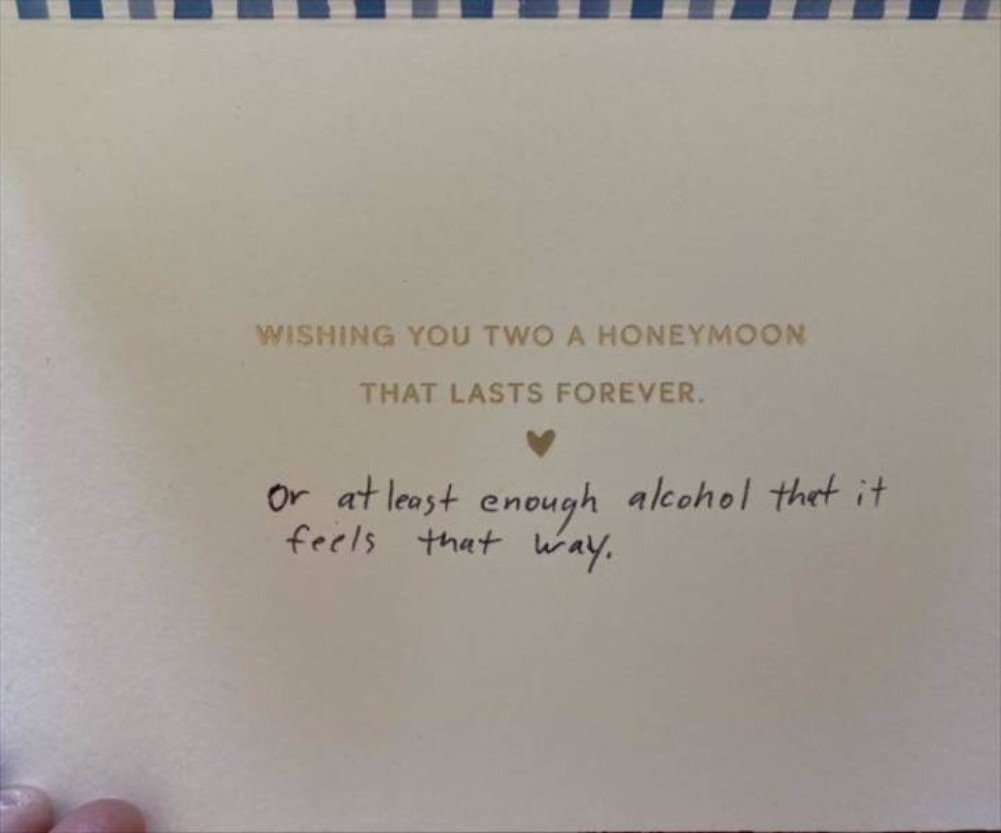 WISHING YOU TWO A HONEYMOON
THAT LASTS FOREVER.
Or at least enough alcohol that it
feels that way.